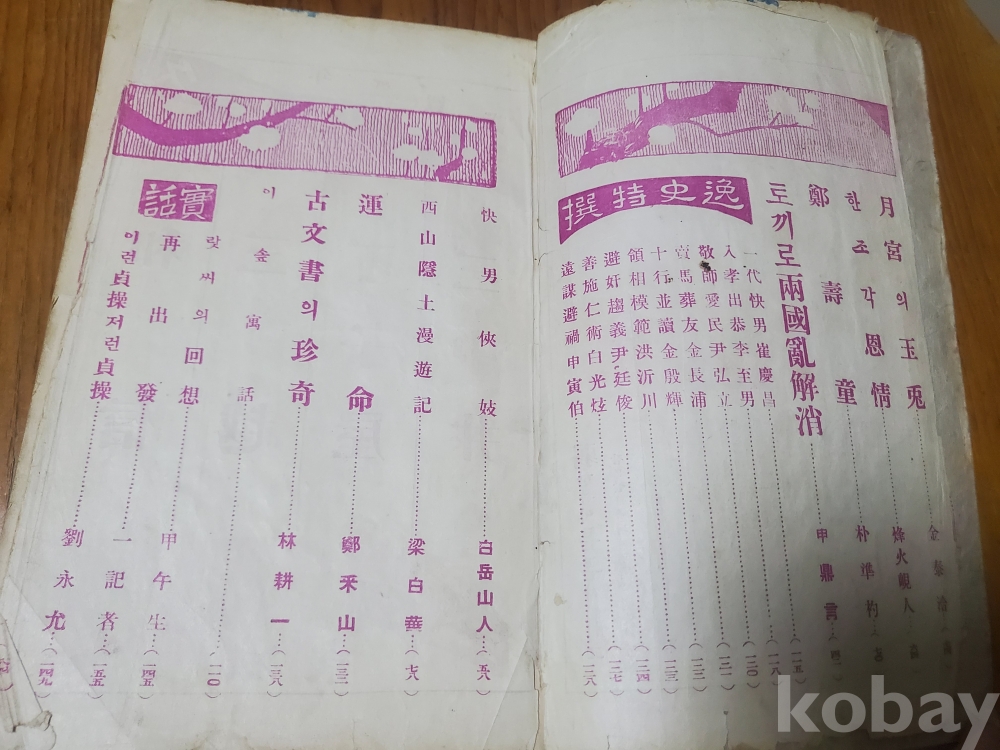 月宮의玉兎
한조각恩情 朴準杓
鄭壽童
토끼로兩國亂解消 申鼎言
逸史特撰
一代快男崔慶昌 (一一五)
入孝出恭李至男 (一一八)
敬師愛民尹弘立 (一二〇)
賣馬葬友金長浦 (一二一)
十行並讀金殷輝 (一二二)
領相模範洪沂川 (一二四)
避奸趨義尹廷俊
善施仁術白光炫 (一二七)
遠謀避禍申寅伯 (一二八)
快男俠妓 白岳山人
西山隱士漫遊記 梁白華
運命 鄭釆山 (一三二)
古文書의珍奇 林耕一 (一三八)
이솝寓話
랏씨의回想
實話
再出發 甲午生 (一四五)
이런貞操저런貞操 一記者 (一五五)
劉永允 (一四九)
kobay